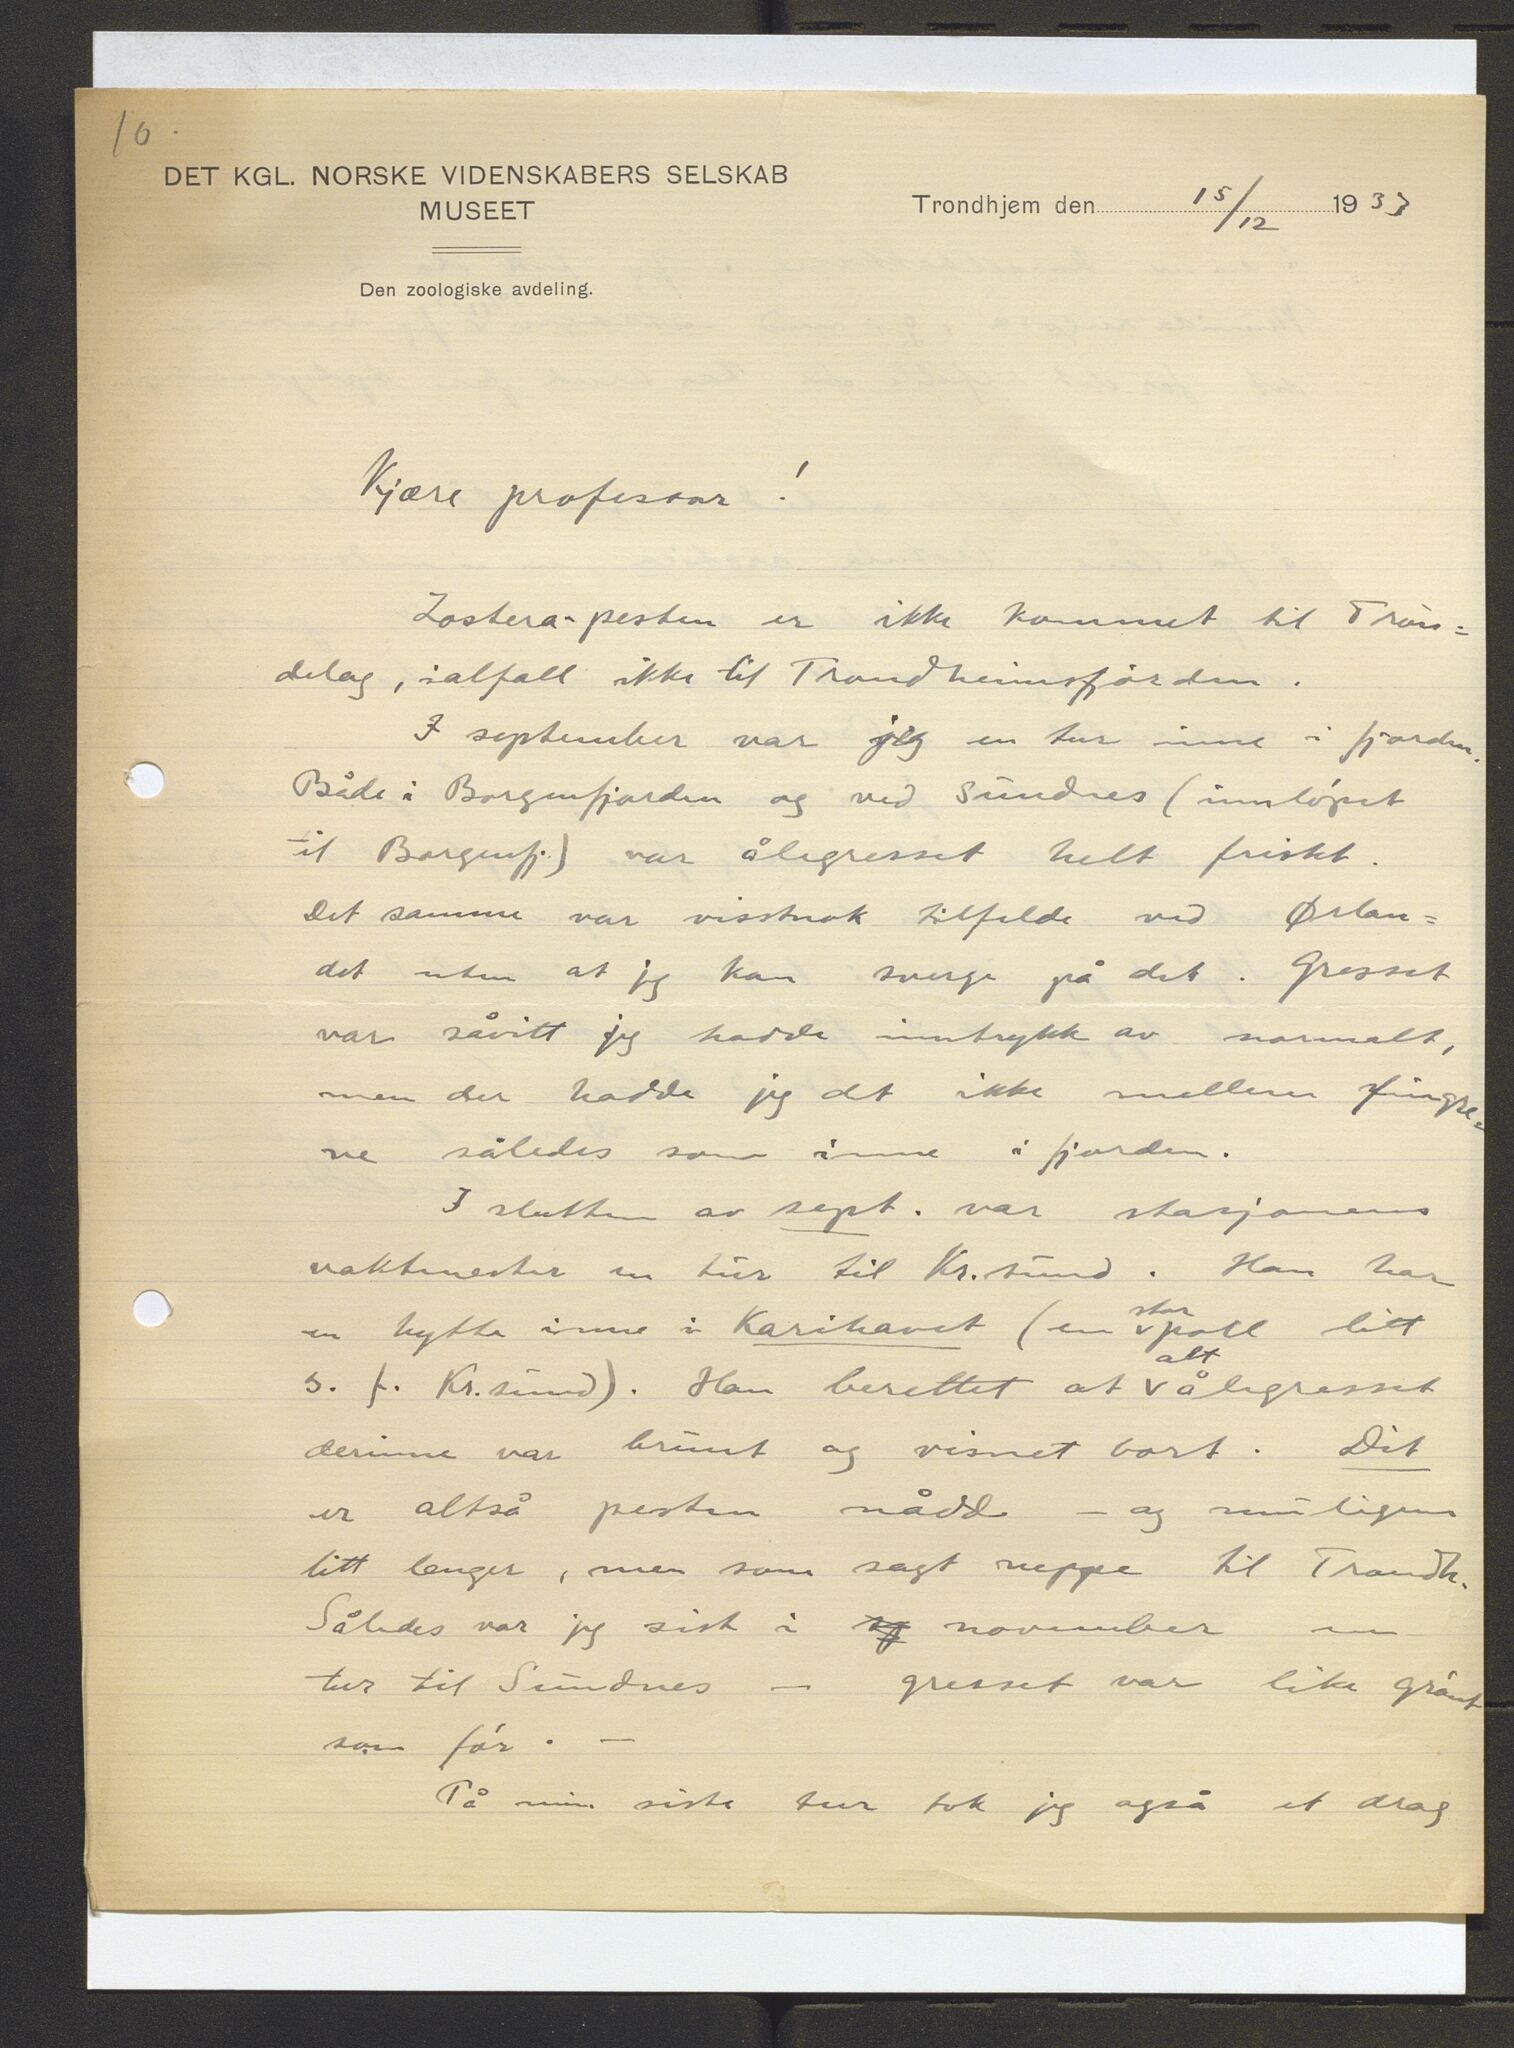 10.
DET KGL. NORSKE VIDENSKABERS SELSKAB
MUSEET
Trondhjem den 15/12 1933
Den zoologiske avdeling.
Kjære professor!
Zostera-pesten er ikke kommet til Trön=
delag, ialfall ikke til Trondheimsfjorden.
I september var jeg en tur inne i fjorden.
Både i Borgenfjorden og ved Sundnes (innløpet
til Borgenfj.) var ålegresset helt friskt.
Det samme var visstnok tilfelde ved Ørlan=
det uten at jeg kan sverge på det. Gresset
var såvitt jeg hadde inntrykk av normalt,
men der hadde jeg det ikke mellem fingre=
ne således som inne i fjorden.
I slutten av sept. var stasjonens
vaktmester en tur til Kr.sund. Han har
en hytte inne i Karihavet (en stor poll litt
s. f. Kr.sund). Han berettet at alt ålegresset
derinne var brunt og visnet bort. Dit
er altså pesten nådd – og muligens
litt lenger, men som sagt neppe til Trondh.
Således var jeg sist i november en
tur til Sundnes – gresset var like grønt
som før. –
På min siste tur tok jeg også et drag